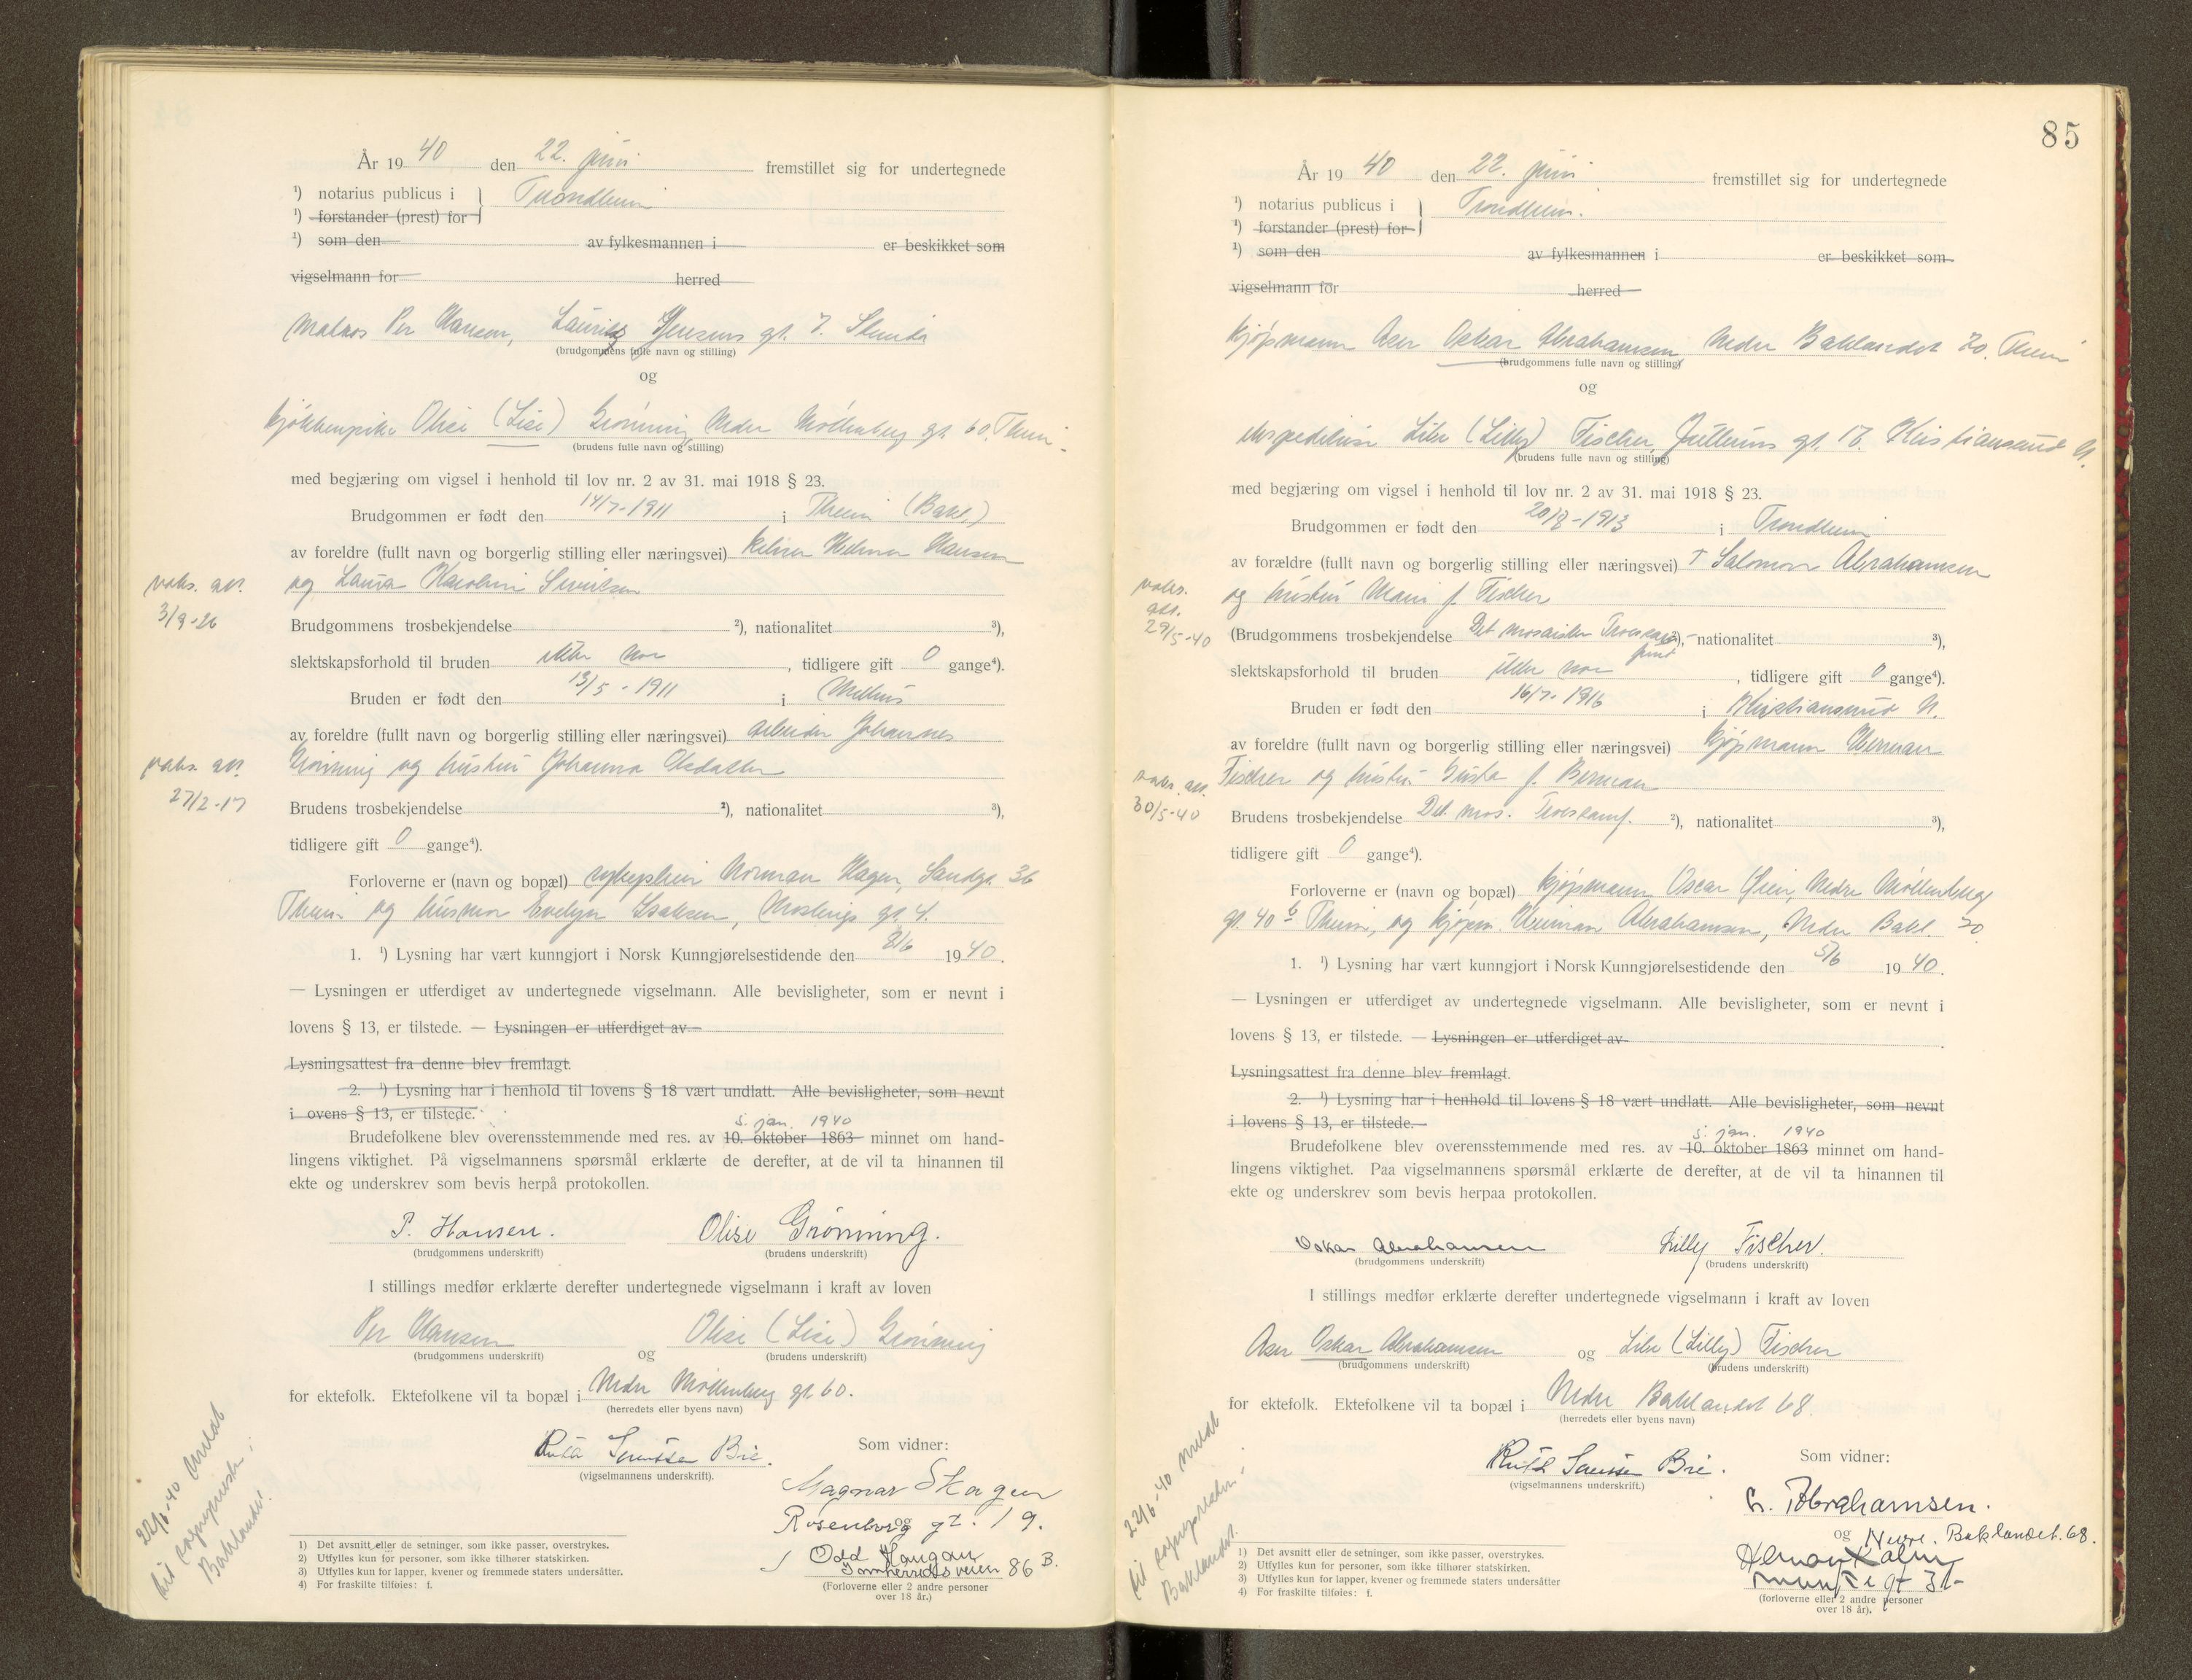 År 1940 den 22. juni fremstillet sig for undertegnede
¹) notarius publicus i } Trondheim
¹) forstander (prest) for
¹) som den av fylkesmannen i er beskikket som
vigselmann for herred
matros Per Hansen, Lauritz Jensens gt. 7. Steinda
(brudgommens fulle navn og stilling)
og
kjøkkenpike Olise (Lise) Grønning, Nedre Møllenberg gt. 60. Theim.
(brudens fulle navn og stilling)
med begjæring om vigsel i henhold til lov nr. 2 av 31. mai 1918 § 23.
Brudgommen er født den 14/7-1911 i Theim (Bakl.)
av foreldre (fullt navn og borgerlig stilling eller næringsvei) Hilmar Hansen
og Laura Karoline
vaks. att.
3/9-26
Brudgommens trosbekjendelse ²), nationalitet ³),
slektskapsforhold til bruden ikke noe, tidligere gift 0 gange⁴).
Bruden er født den 13/5-1911 i Melhus
av foreldre (fullt navn og borgerlig stilling eller næringsvei) arbeider Johannes
Grønning og hustru Johanna Olsdatter
vaks. att.
27/2-17
Brudens trosbekjendelse ²), nationalitet ³),
tidligere gift 0 gange⁴).
Forloverne er (navn og bopæl) Norman Hagen, Sandgt. 36
Theim og husmor Evelyn Isaksen, gt. 4.
1. ¹) Lysning har vært kunngjort i Norsk Kunngjørelsestidende den 8/6 1940.
— Lysningen er utferdiget av undertegnede vigselmann. Alle bevisligheter, som er nevnt i
lovens § 13, er tilstede. — Lysningen er utferdiget av
Lysningsattest fra denne blev fremlagt.
2. ¹) Lysning har i henhold til lovens § 18 vært undlatt. Alle bevisligheter, som nevnt
i ovens § 13, er tilstede.
5. jan. 1940
Brudefolkene blev overensstemmende med res. av 10. oktober 1863 minnet om hand-
lingens viktighet. På vigselmannens spørsmål erklærte de derefter, at de vil ta hinannen til
ekte og underskrev som bevis herpå protokollen.
P. Hansen. Olise Grønning.
(brudgommens underskrift) (brudens underskrift)
I stillings medfør erklærte derefter undertegnede vigselmann i kraft av loven
Per Hansen og Olise (Lise) Grønning
(brudgommens underskrift) (brudens underskrift)
for ektefolk. Ektefolkene vil ta bopæl i Nedre Møllenberg gt. 60.
(herredets eller byens navn)
Ruth Bie.
(vigselmannens underskrift).
Som vidner:
Magnar Skogen
Rosenborg gt. 19.
og
Odd Haugan
Innherredsveien 86 B.
(Forloverne eller 2 andre personer
over 18 år.)
22/6-40 meldt
til sogneprest i
Baklandet.
1) Det avsnitt eller de setninger, som ikke passer, overstrykes.
2) Utfylles kun for personer, som ikke tilhører statskirken.
3) Utfylles kun for lapper, kvener og fremmede staters undersåtter.
4) For fraskilte tilføies: f.
85
År 1940 den 22. juni fremstillet sig for undertegnede
¹) notarius publicus i } Trondheim.
¹) forstander (prest) for
¹) som den av fylkesmannen i er beskikket som
vigselmann for herred
kjøpmann Aser Oskar Abrahamsen Nedre Baklandet 20. Theim
(brudgommens fulle navn og stilling)
og
ekspeditrise Libe (Lilly) Fischer, gt. 17. Kristiansund N.
(brudens fulle navn og stilling)
med begjæring om vigsel i henhold til lov nr. 2 av 31. mai 1918 § 23.
Brudgommen er født den 20/8-1913 i Trondheim
av forældre (fullt navn og borgerlig stilling eller næringsvei) † Salomon Abrahamsen
og hustru Marie f. Fischer
vaks.
att.
29/5-40
(Brudgommens trosbekjendelse Det mosaiske Trossamfund ²), nationalitet ³),
slektskapsforhold til bruden ikke noe, tidligere gift 0 gange⁴).
Bruden er født den 16/7-1916 i Kristiansund N.
av foreldre (fullt navn og borgerlig stilling eller næringsvei) kjøpmann Herman
Fischer og hustru Gusta f. Berman
vaks. att.
30/5-40
Brudens trosbekjendelse Det mos. Trossamf. ²), nationalitet ³),
tidligere gift 0 gange⁴).
Forloverne er (navn og bopæl) kjøpmann Oscar Nedre Møllenberg
gt. 40 b Theim, og kjøpm. Heiman Abrahamsen, Nedre Bakl. 20
1. ¹) Lysning har vært kunngjort i Norsk Kunngjørelsestidende den 5/6 1940.
— Lysningen er utferdiget av undertegnede vigselmann. Alle bevisligheter, som er nevnt i
lovens § 13, er tilstede. — Lysningen er utferdiget av
Lysningsattest fra denne blev fremlagt.
2. ¹) Lysning har i henhold til lovens § 18 vært undlatt. Alle bevisligheter, som nevnt
i lovens § 13, er tilstede.
5. jan. 1940
Brudefolkene blev overensstemmende med res. av 10. oktober 1863 minnet om hand-
lingens viktighet. Paa vigselmannens spørsmål erklærte de derefter, at de vil ta hinannen til
ekte og underskrev som bevis herpaa protokollen.
Oskar Abrahamsen Lilly Fischer.
(brudgommens underskrift) (brudens underskrift)
I stillings medfør erklærte derefter undertegnede vigselmann i kraft av loven
Aser Oskar Abrahamsen og Libe (Lilly) Fischer
(brudgommens underskrift) (brudens underskrift)
for ektefolk. Ektefolkene vil ta bopæl i Nedre Baklandet 68.
(herredets eller byens navn)
Ruth Bie.
(vigselmannens underskrift.)
Som vidner:
H. Abrahamsen.
og Nedre. Baklandet. 68.
Herman
gt 31
(forloverne eller 2 andre personer
over 18 år).
22/6-40 meldt
til sognepresten i
Baklandet.
1) Det avsnitt eller de setninger, som ikke passer, overstrykes.
2) Utfylles kun for personer, som ikke tilhører statskirken.
3) Utfylles kun for lapper, kvener og fremmede staters undersåtter
4) For fraskilte tilføies: f.